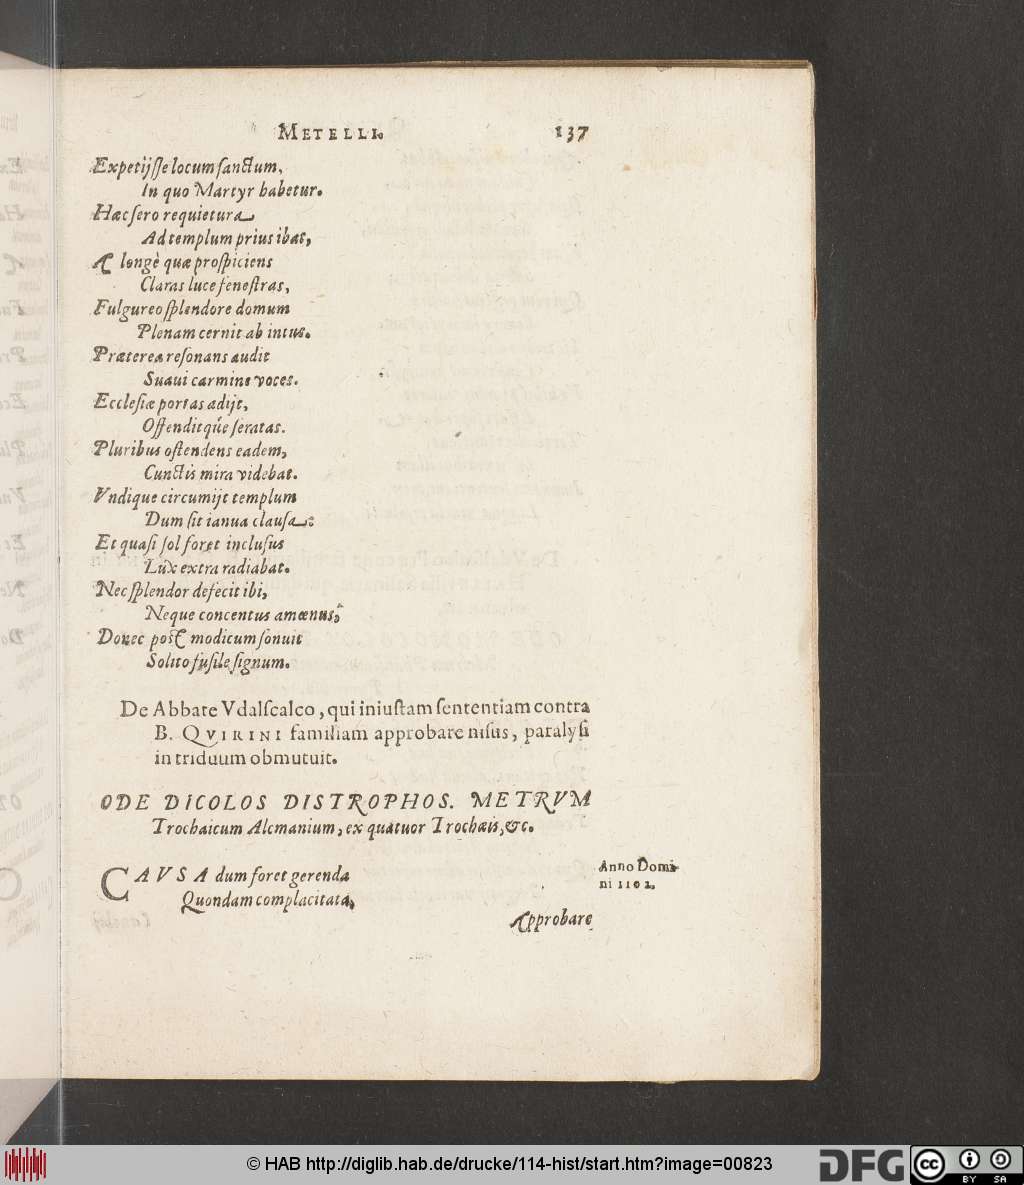 METELLI. 137
Expetijsse locum sanctum,
In quo Martyr habetur.
Hæc sero requietura
Ad templum prius ibat,
A longè quæ prospiciens
Claras luce fenestras,
Fulgureo splendore domum
Plenam cernit ab intus.
Præterea resonans audit
Suaui carmine voces.
Ecclesiæ portas adijt,
Offenditq́ue seratas.
Pluribus ostendens eadem,
Cunctis mira videbat.
Vndique circumijt templum
Dum sit ianua clausa:
Et quasi sol foret inclusus
Lux extra radiabat.
Nec splendor defecit ibi,
Neque concentus amœnus,
Donec post modicum sonuit
Solito fusile signum.
De Abbate Vdalscalco, qui iniustam sententiam contra
B. QVIRINI familiam approbare nisus, paralysi
in triduum obmutuit.
ODE DICOLOS DISTROPHOS. METRVM
Trochaicum Alcmanium, ex quatuor Trochæis, &c.
CAVSA dum foret gerenda
Quondam complacitata,
Anno Domi-
ni 1102.
Approbare
© HAB http://diglib.hab.de/drucke/114-hist/start.htm?image=00823
DFG
cc BY SA